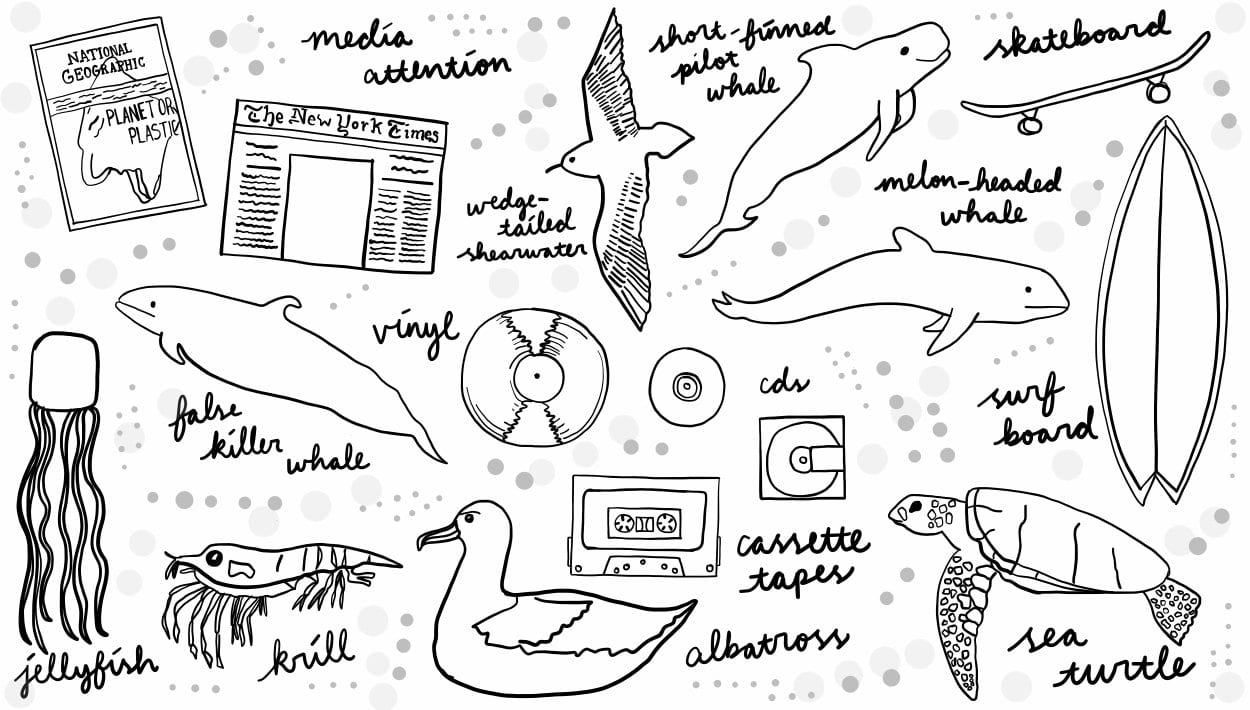 NATIONAL
GEOGRAPHIC
PLANET OR
PLASTIC
media
attention
The New York Times
short-finned
pilot
whale
skateboard
wedge-
tailed
shearwater
melon-headed
whale
vinyl
cds
false
killer
whale
surf
board
cassette
tapes
jellyfish
krill
albatross
sea
turtle